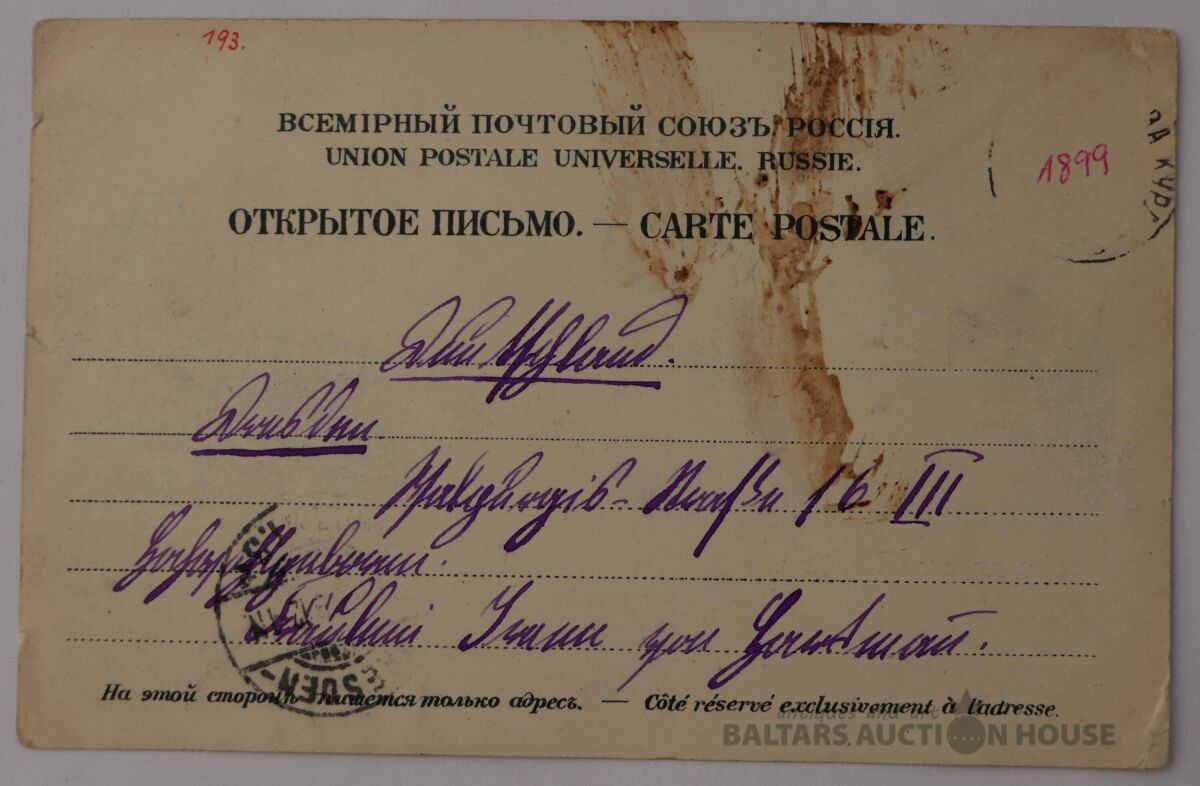 193.
ВСЕМІРНЫЙ ПОЧТОВЫЙ СОЮЗЪ. РОССІЯ.
UNION POSTALE UNIVERSELLE. RUSSIE.
1899
ОТКРЫТОЕ ПИСЬМО. — CARTE POSTALE.
Deutschland.
Dresden
Straße 16 III
Hochwohlgeboren.
Fräulein von
На этой сторонѣ пишется только адресъ. — Côté réservé exclusivement à l'adresse.
antiques and art
BALTARS AUCTION HOUSE